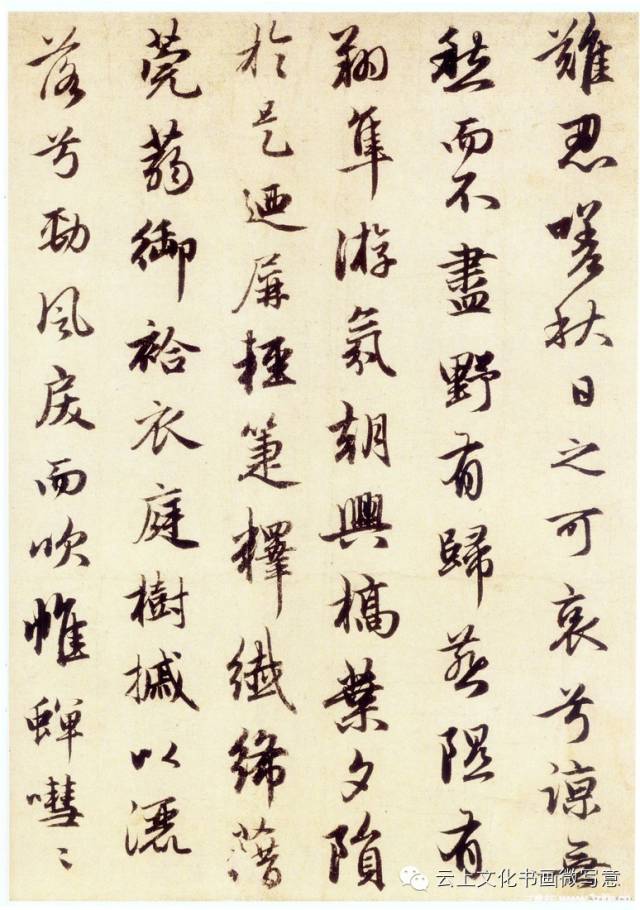 難忍嗟秋日之可哀兮諒無
愁而不盡野有歸燕隰有
翔隼游氛朝興槁葉夕隕
於是迺屏輕箑釋纖絺藉
莞蒻御袷衣庭樹槭以灑
落兮勁風戾而吹帷蟬嘒〻
云上文化书画微写意